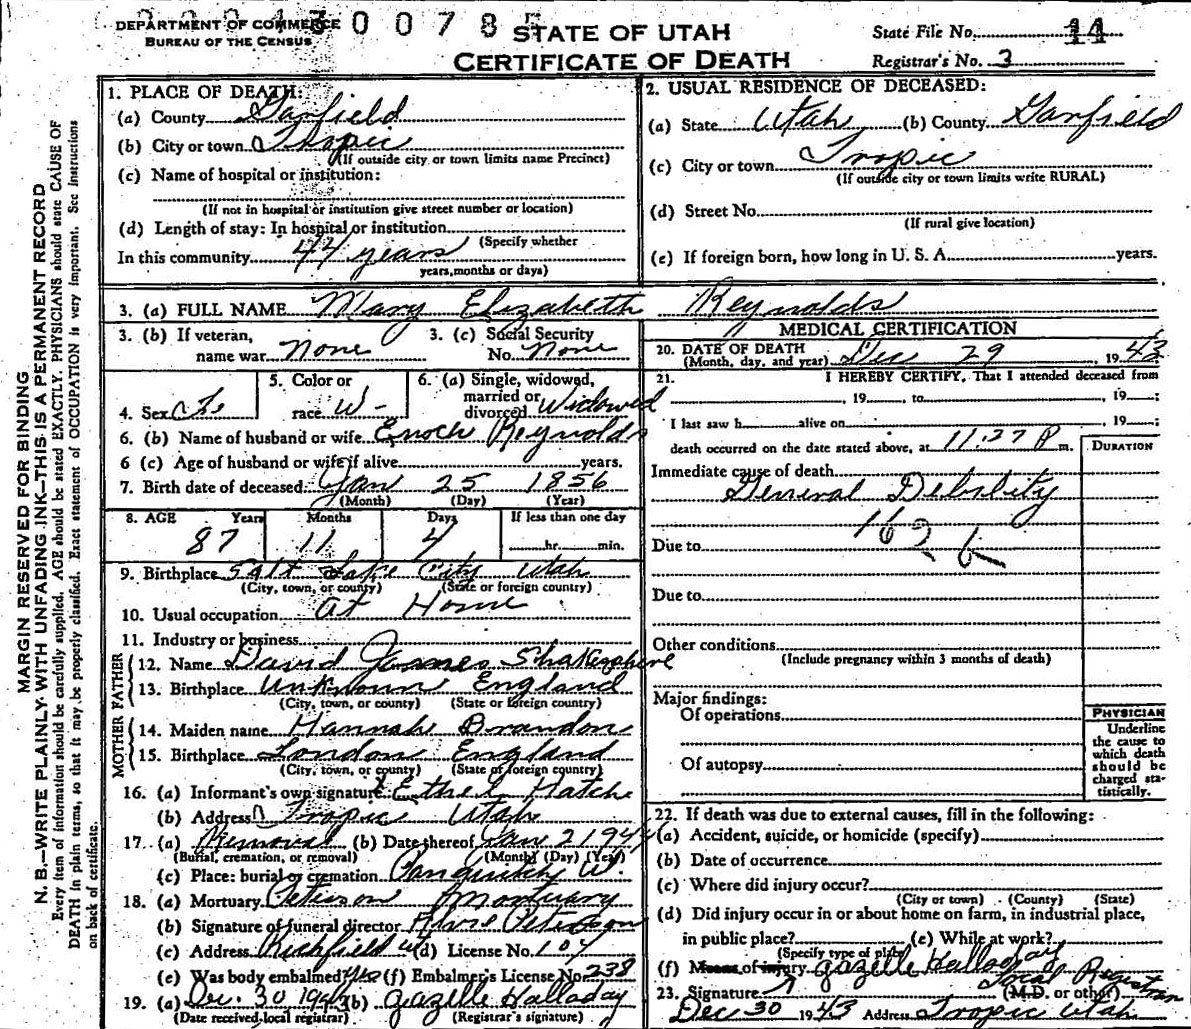 DEPARTMENT OF COMMERCE
BUREAU OF THE CENSUS
0 0 7 8 5
STATE OF UTAH
CERTIFICATE OF DEATH
State File No. 14
Registrar's No. 3
MARGIN RESERVED FOR BINDING
N. B.—WRITE PLAINLY WITH UNFADING INK—THIS IS A PERMANENT RECORD
Every item of information should be carefully supplied. AGE should be stated EXACTLY. PHYSICIANS should state CAUSE OF
DEATH in plain terms, so that it may be properly classified. Exact statement of OCCUPATION is very important. See Instructions
on back of certificate.
1. PLACE OF DEATH:
(a) County Garfield
(b) City or town Tropic
(If outside city or town limits name Precinct)
(c) Name of hospital or institution:
(If not in hospital or institution give street number or location)
(d) Length of stay: In hospital or institution
(Specify whether
In this community 44 years
years, months or days)
2. USUAL RESIDENCE OF DECEASED:
(a) State Utah (b) County Garfield
(c) City or town Tropic
(If outside city or town limits write RURAL)
(d) Street No.
(If rural give location)
(e) If foreign born, how long in U. S. A. years.
3. (a) FULL NAME Mary Elizabeth Reynolds
3. (b) If veteran, name war None
3. (c) Social Security No. None
4. Sex Fe
5. Color or race W-
6. (a) Single, widowed, married or divorced Widowed
6. (b) Name of husband or wife Enoch Reynolds
6 (c) Age of husband or wife if alive years.
7. Birth date of deceased Jan 25 1856
(Month) (Day) (Year)
8. AGE Years Months Days If less than one day
87 11 4 hr. min.
9. Birthplace Salt Lake City Utah
(City, town, or county) (State or foreign country)
10. Usual occupation at Home
11. Industry or business
FATHER
12. Name David James Shakesphere
13. Birthplace Unknown England
(City, town, or county) (State or foreign country)
MOTHER
14. Maiden name Hannah Brandon
15. Birthplace London England
(City, town, or county) (State or foreign country)
16. (a) Informant's own signature Ethel Hatch
(b) Address Tropic Utah
17. (a) Removal (b) Date thereof Jan 2 1944
(Burial, cremation, or removal) (Month) (Day) (Year)
(c) Place: burial or cremation Panguitch U.
18. (a) Mortuary Peterson Mortuary
(b) Signature of funeral director Peterson
(c) Address Richfield Ut (d) License No. 104
(e) Was body embalmed (f) Embalmer's License No. 238
19. (a) Dec. 30 1943 (b) Gazelle Halladay
(Date received local registrar) (Registrar's signature)
MEDICAL CERTIFICATION
20. DATE OF DEATH
(Month, day, and year) Dec 29, 1943
21. I HEREBY CERTIFY, That I attended deceased from
, 19 , to , 19 ;
I last saw h alive on 19 ;
death occurred on the date stated above, at 11:27 P m.
DURATION
Immediate cause of death
General Debility
162 b
Due to
Due to
Other conditions
(Include pregnancy within 3 months of death)
Major findings:
Of operations
Of autopsy
PHYSICIAN
Underline
the cause to
which death
should be
charged sta-
tistically.
22. If death was due to external causes, fill in the following:
(a) Accident, suicide, or homicide (specify)
(b) Date of occurrence
(c) Where did injury occur?
(City or town) (County) (State)
(d) Did injury occur in or about home on farm, in industrial place,
in public place? (e) While at work?
(Specify type of place)
(f) Means of injury Gazelle Halladay
Local Registrar
23. Signature (M.D. or other)
Dec 30 1943 Address Tropic Utah